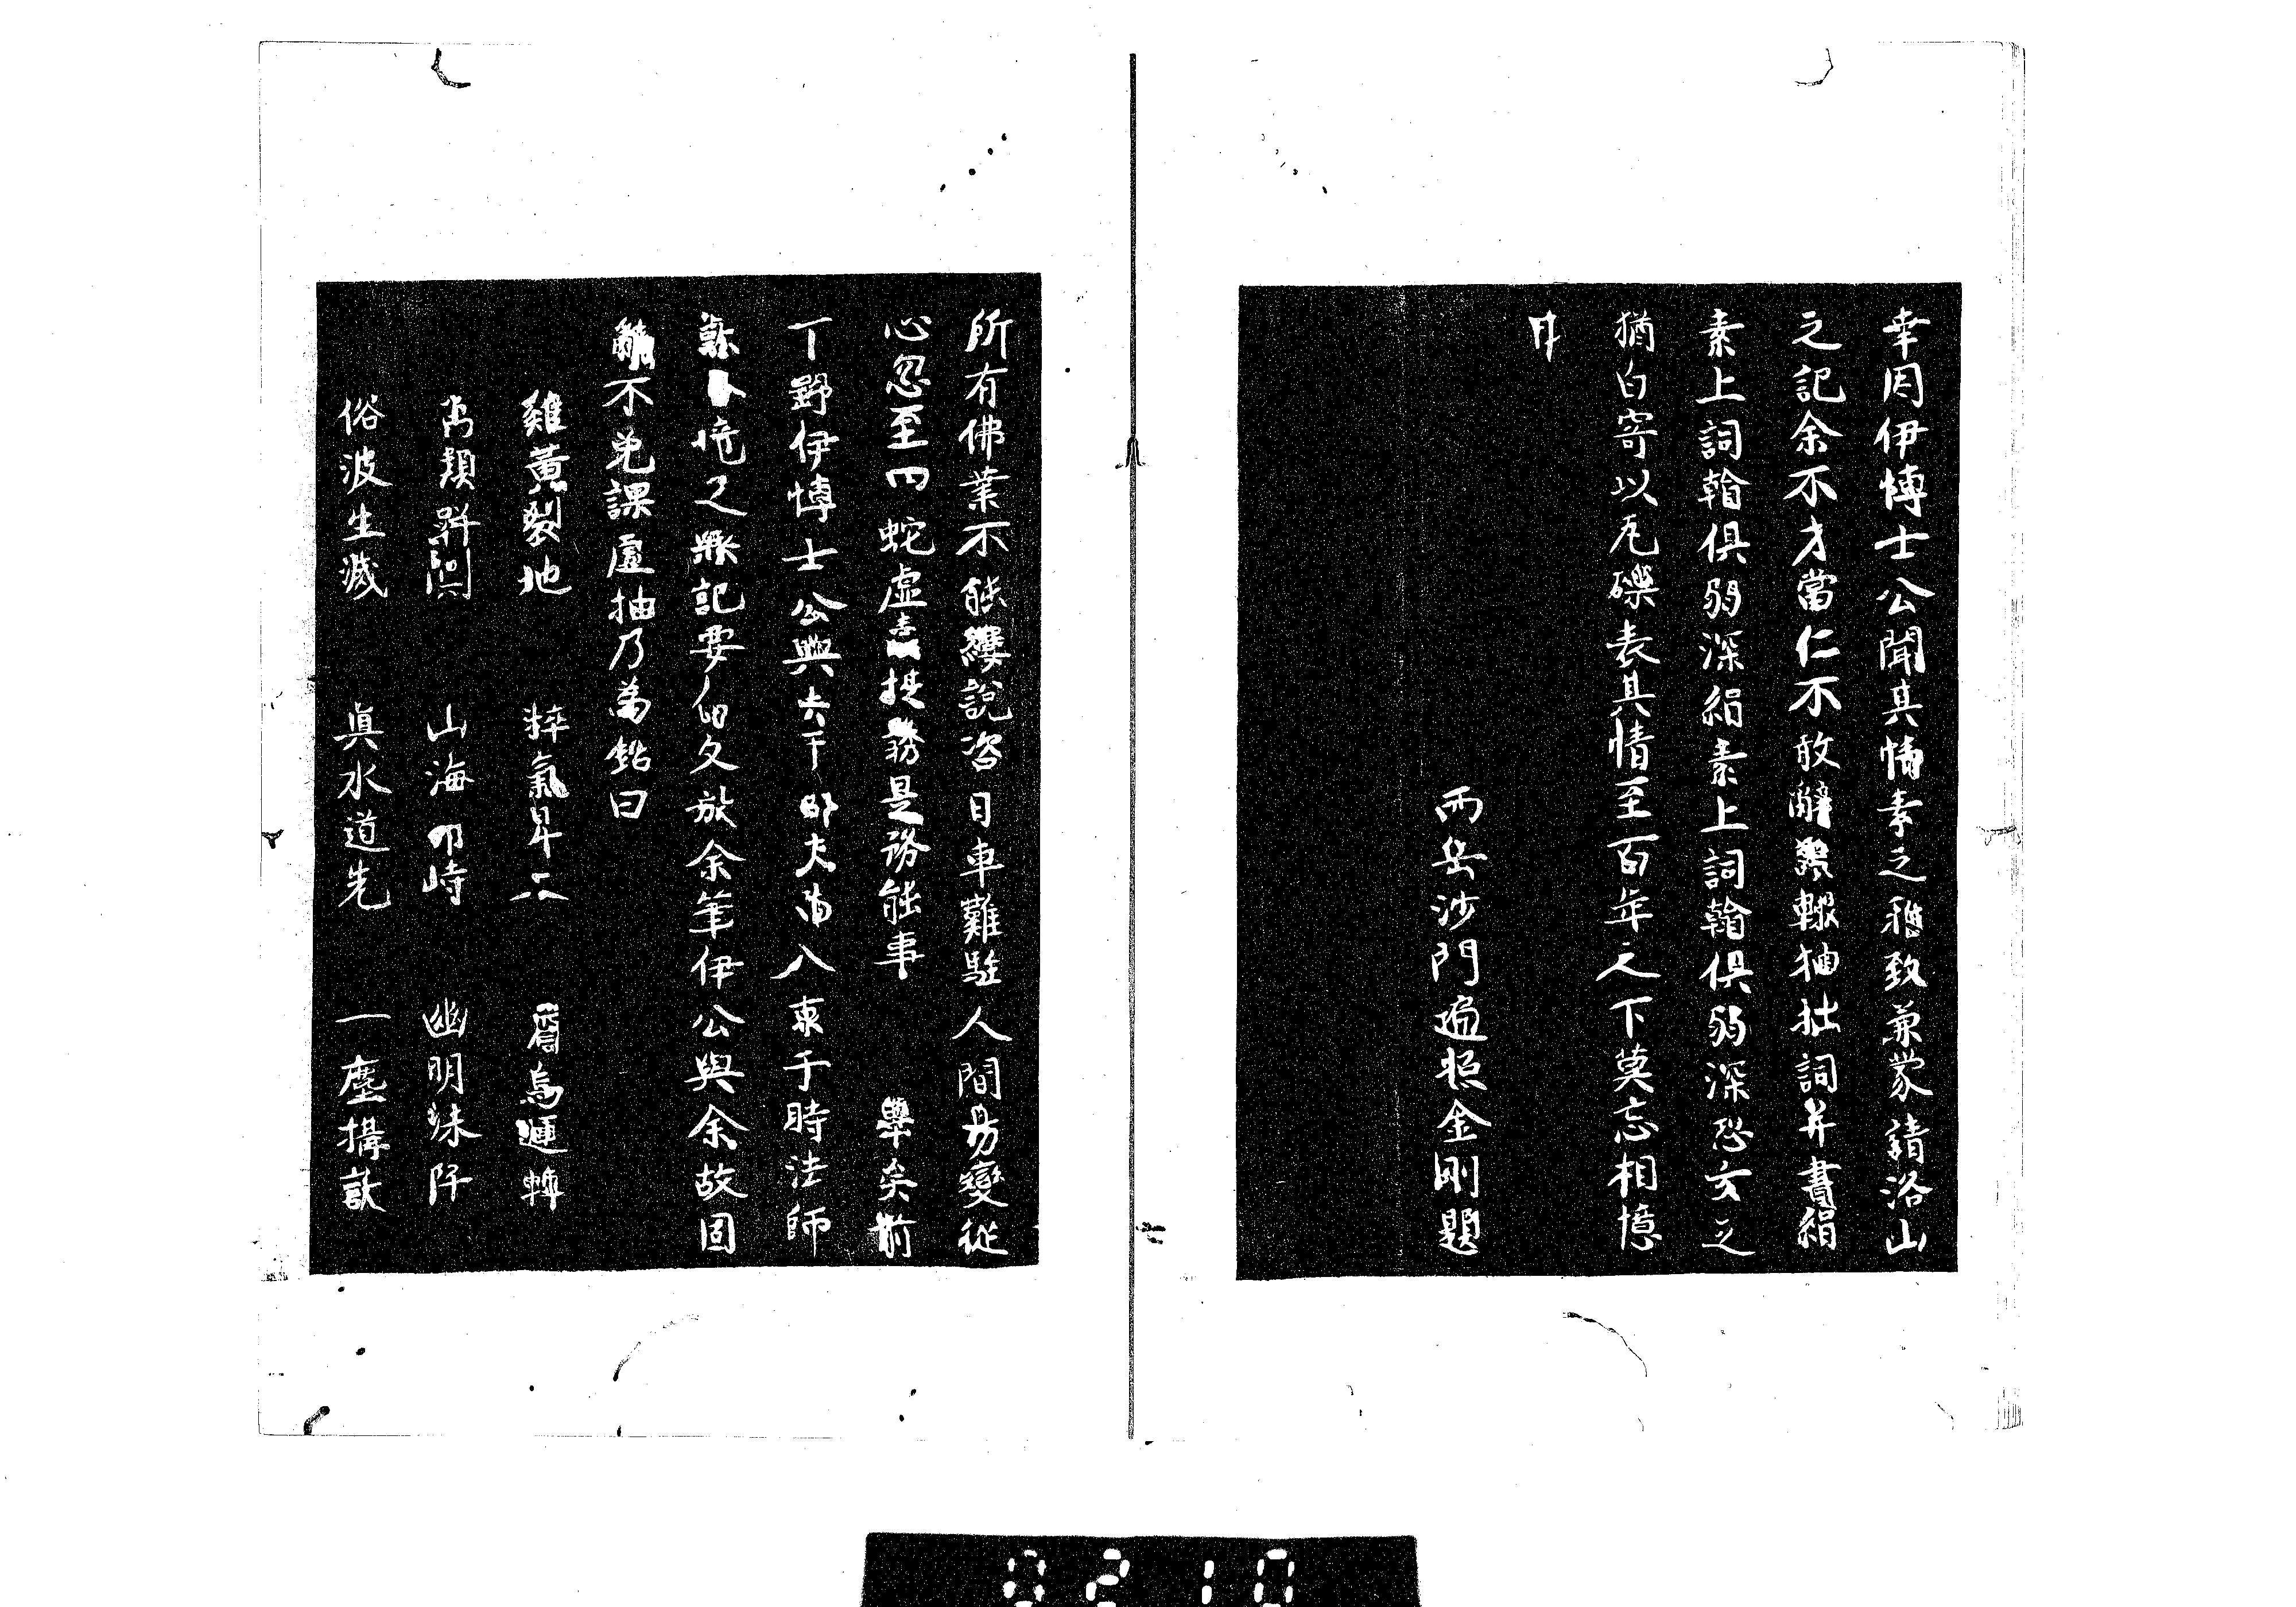 幸因伊博士公聞其情素之雅致兼蒙請洛山
之記余不才當仁不敢辭讓輙抽拙詞并書絹
素上詞翰俱弱深絹素上詞翰俱弱深恐玄之
猶白寄以瓦礫表其情至百年之下莫忘相憶
耳
西岳沙門遍照金剛題
所有佛業不能縷說咨日車難駐人間易變從
心忽至四蛇虛 是務能事 畢矣前
下野伊博士公與 于時法師
境之 記要 文於余筆伊公與余故固
辭不免課虛抽乃為銘曰
雞黃裂地 粹氣昇天 烏運轉
山海 峙 幽明殊阡
俗波生滅 真水道先 一塵構
0210